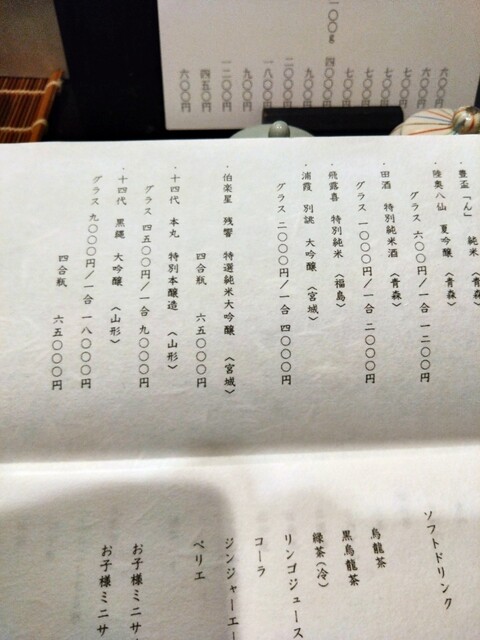 一〇〇g 四〇〇〇円
六〇〇円
六〇〇円
七〇〇円
七〇〇円
七〇〇円
七〇〇円
九〇〇円
二〇〇〇円
一八〇〇円
九〇〇円
一二〇〇円
四五〇円
六〇〇円
・豊盃「ん」 純米 〈青森〉
・陸奥八仙 夏吟醸 〈青森〉
グラス 六〇〇円/一合 一二〇〇円
・田酒 特別純米酒 〈青森〉
グラス 一〇〇〇円/一合 二〇〇〇円
・飛露喜 特別純米 〈福島〉
・浦霞 別誂 大吟醸 〈宮城〉
グラス 二〇〇〇円/一合 四〇〇〇円
・伯楽星 残響 特選純米大吟醸 〈宮城〉
四合瓶 六五〇〇〇円
・十四代 本丸 特別本醸造 〈山形〉
グラス 四五〇〇円/一合 九〇〇〇円
・十四代 黒縄 大吟醸 〈山形〉
グラス 九〇〇〇円/一合 一八〇〇〇円
四合瓶 六五〇〇〇円
ソフトドリンク
烏龍茶
黒烏龍茶
緑茶(冷)
リンゴジュース
コーラ
ジンジャーエー
ペリエ
お子様ミニサ
お子様ミニサ